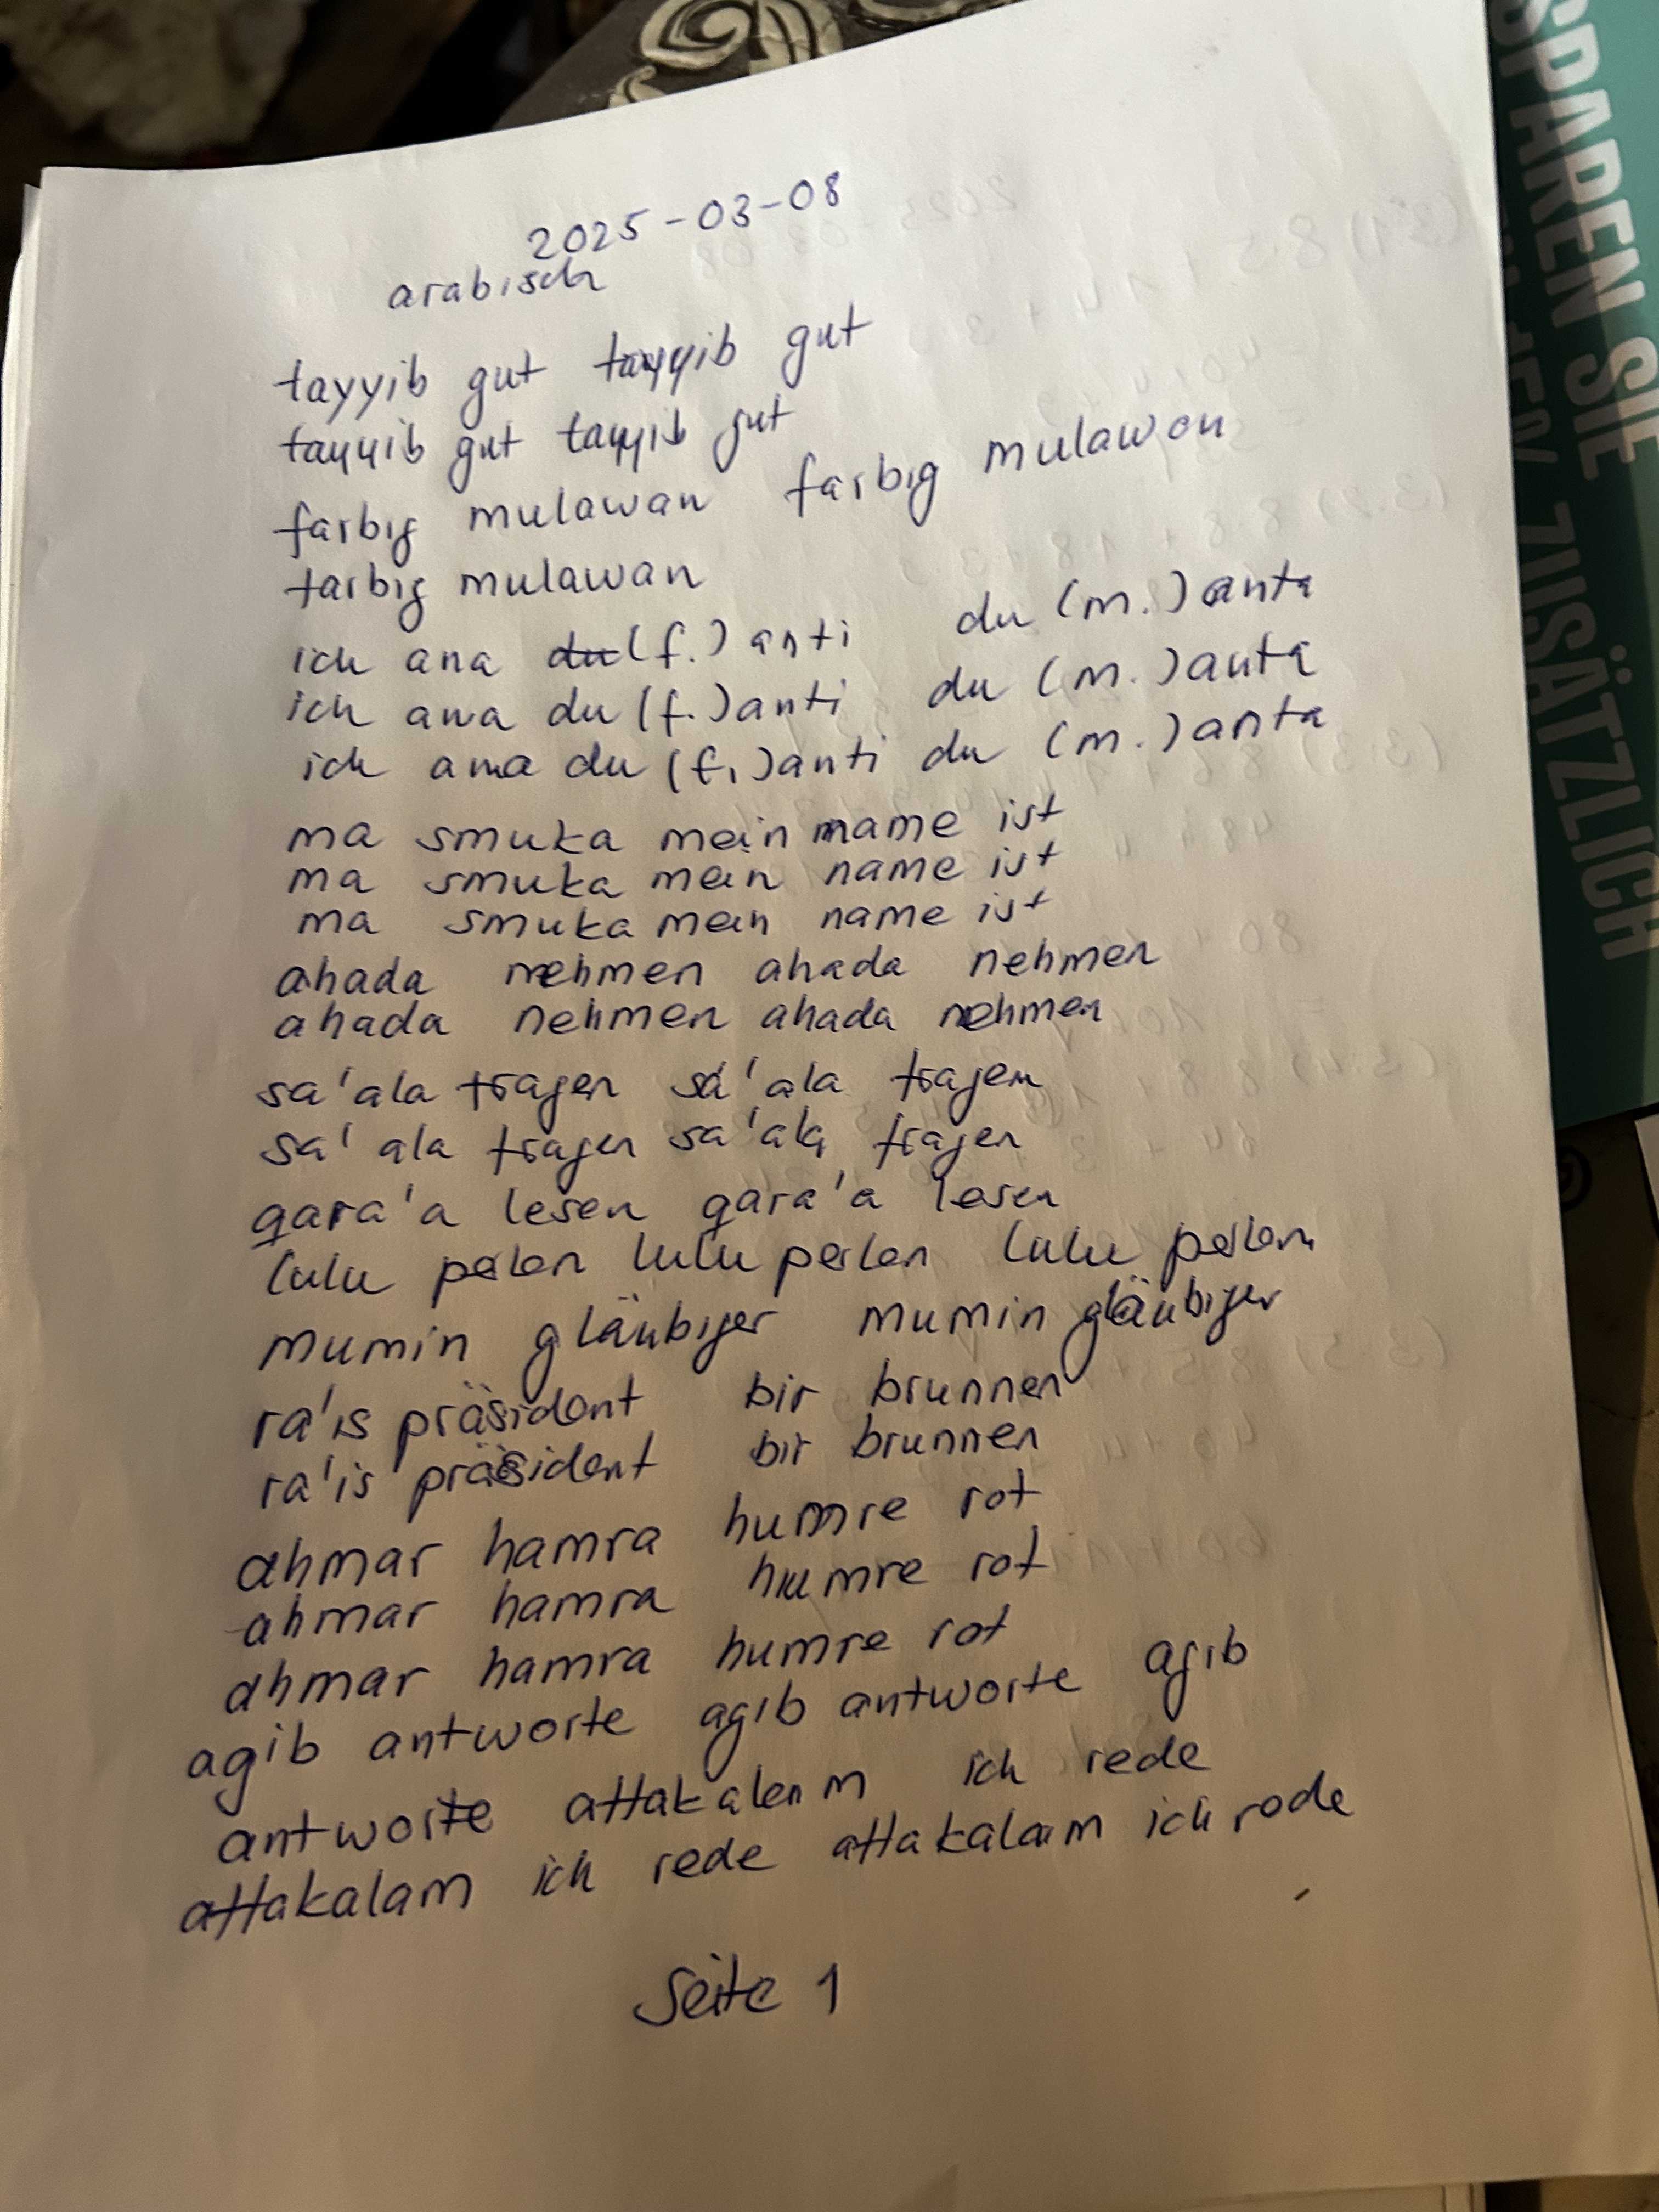 2025-03-08
arabisch
tayyib gut tayyib gut
tayyib gut tayyib gut
farbig mulawan farbig mulawan
farbig mulawan
ich ana (f.) anti du (m.) anta
ich ana du (f.) anti du (m.) anta
ich ana du (f.) anti du (m.) anta
ma smuka mein name ist
ma smuka mein name ist
ma smuka mein name ist
ahada nehmen ahada nehmen
ahada nehmen ahada nehmen
sa'ala fragen sa'ala fragen
sa'ala fragen sa'ala fragen
qara'a lesen qara'a lesen
lulu perlen lulu perlen lulu perlen
mumin gläubiger mumin gläubiger
ra'is präsident bir brunnen
ra'is präsident bir brunnen
ahmar hamra humre rot
ahmar hamra humre rot
ahmar hamra humre rot
agib antworte agib antworte agib
antworte attakalam ich rede
attakalam ich rede attakalam ich rede
Seite 1
SPAREN SIE
ZUSÄTZLICH